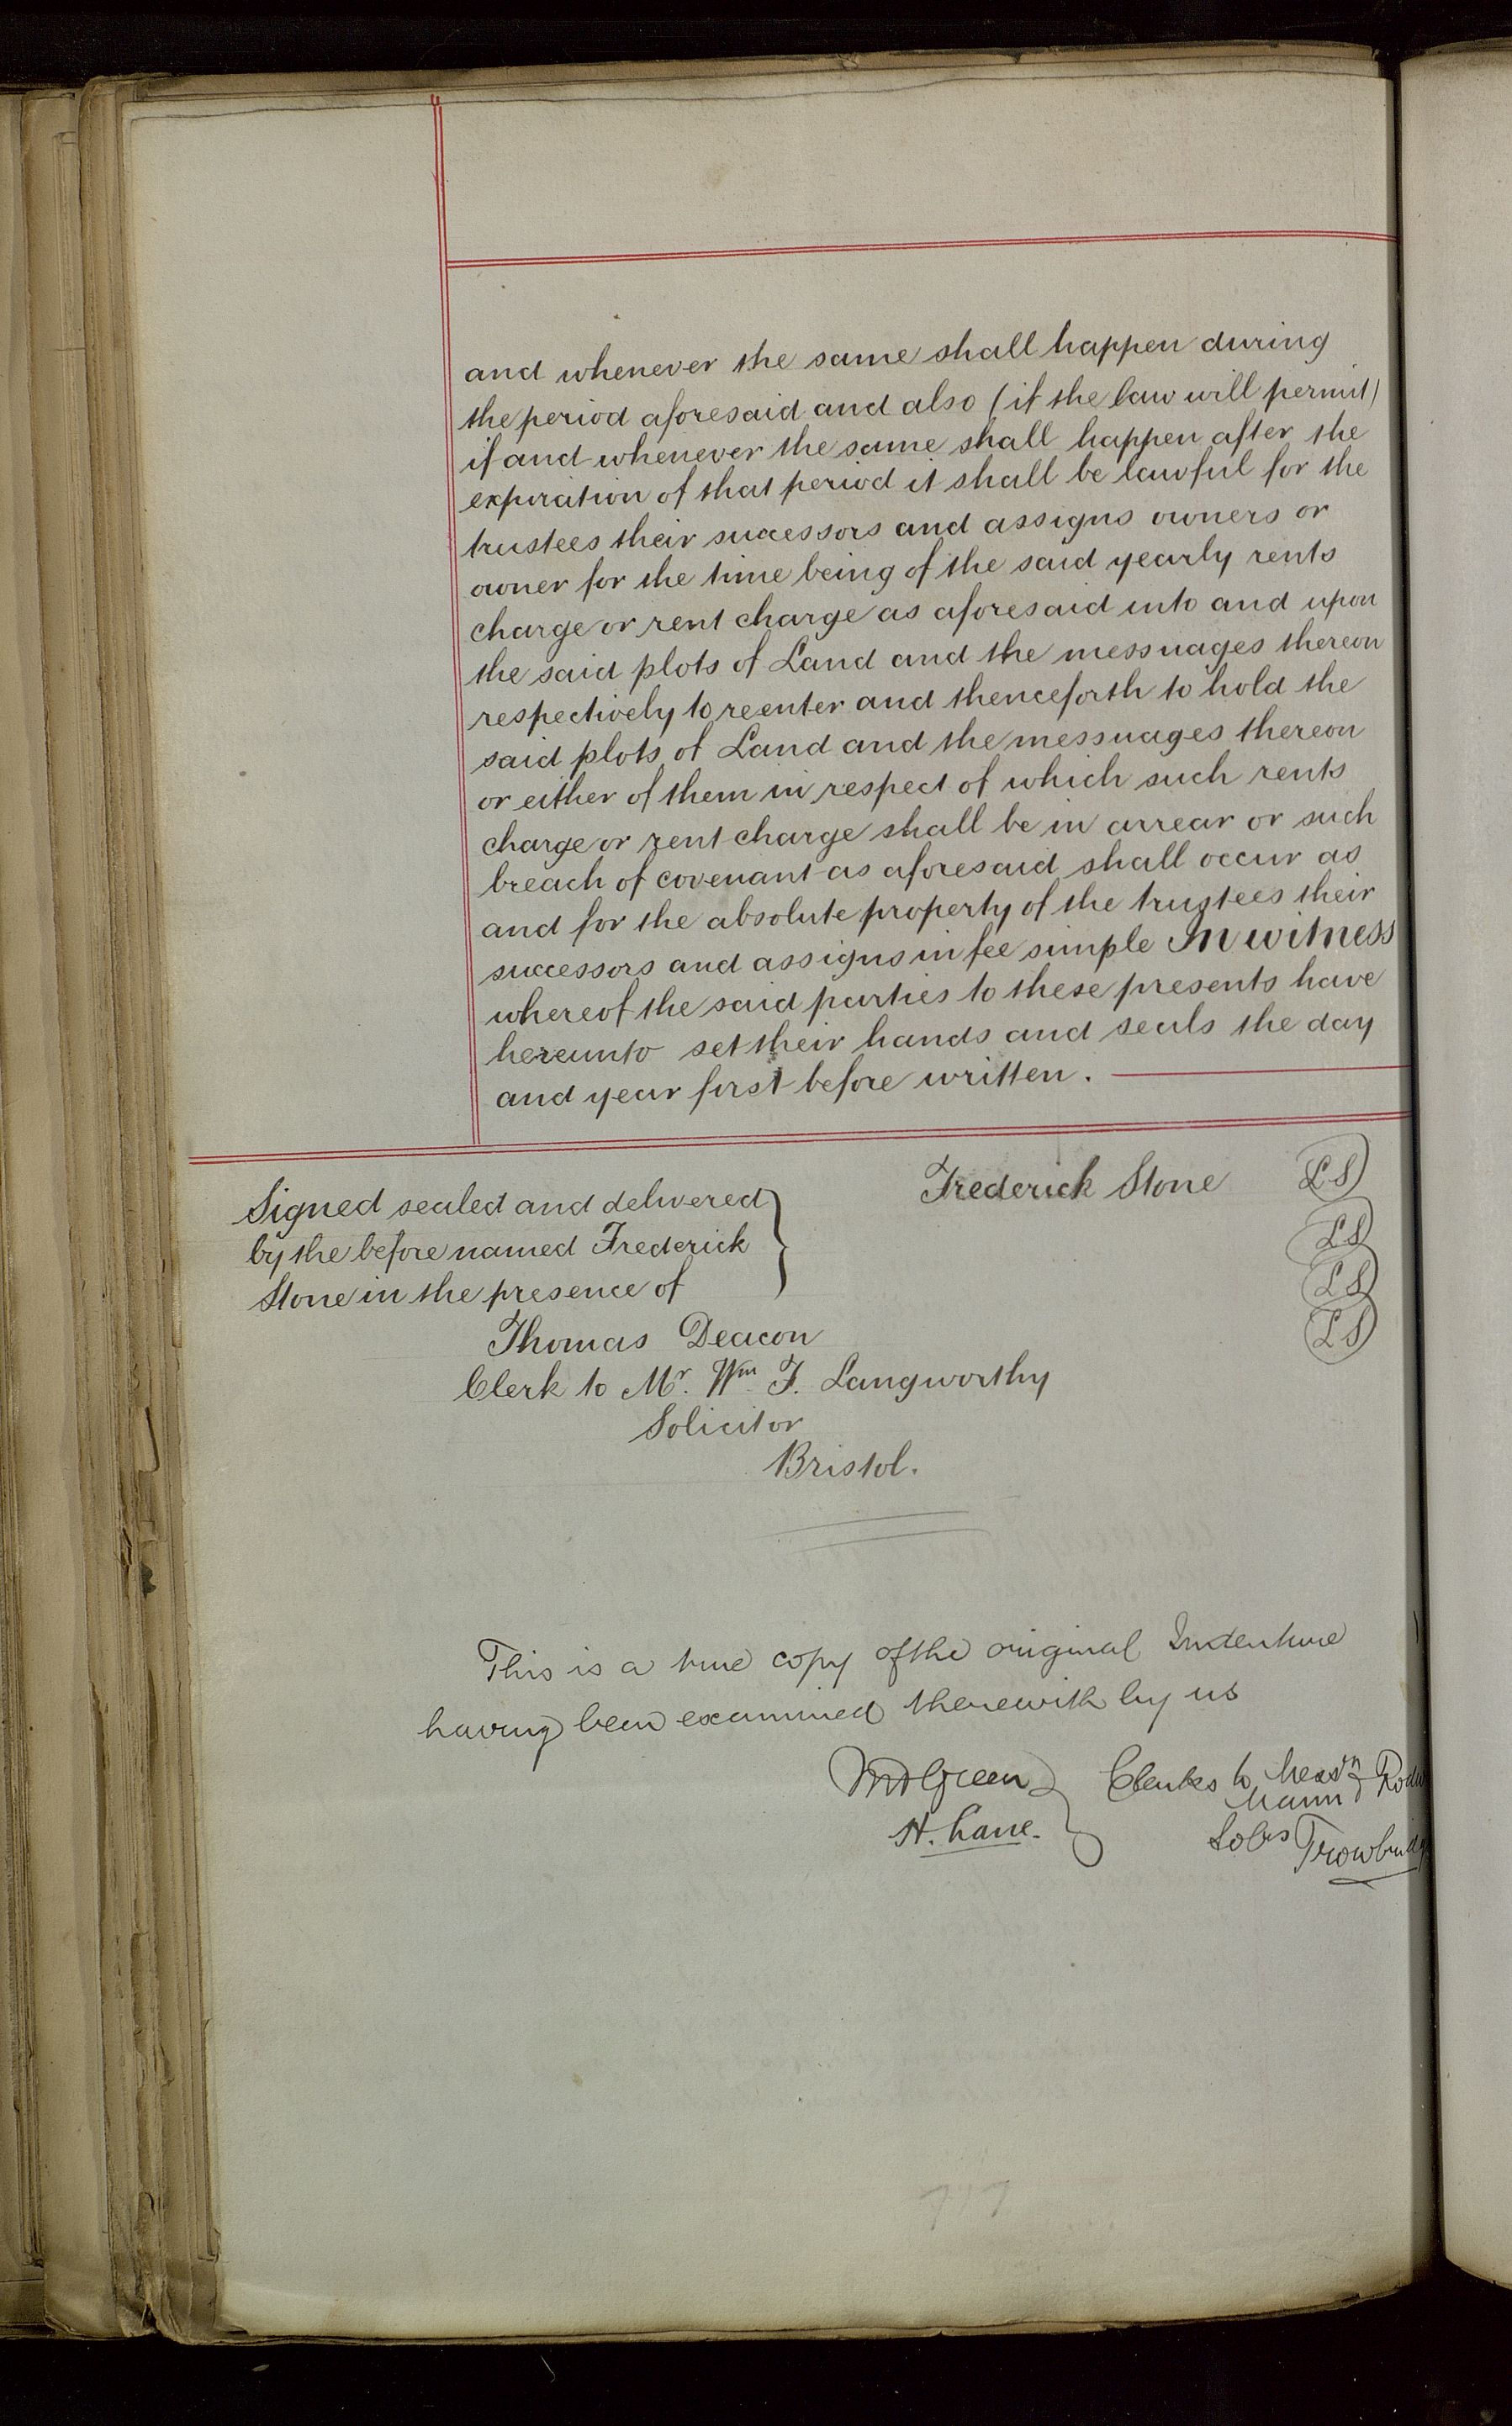 and whenever the same shall happen during
the period aforesaid and also (if the law will permit)
if and whenever the same shall happen after the
expiration of that period it shall be lawful for the
trustees their successors and assigns owners or
owner for the time being of the said yearly rents
charge or rent charge as aforesaid into and upon
the said plots of Land and the messuages thereon
respectively to reenter and thenceforth to hold the
said plots of Land and the messuages thereon
or either of them in respect of which such rents
charge or rent charge shall be in arrear or such
breach of covenant as aforesaid shall occur as
and for the absolute property of the trustees their
successors and assigns in fee simple In witness
whereof the said parties to these presents have
hereunto set their hands and seals the day
and year first before written.
Frederick Stone LS
LS
LS
LS
Signed sealed and delivered
by the before named Frederick
Stone in the presence of
Thomas Deacon
Clerk to Mr. Wm F. Langworthy
Solicitor
Bristol.
This is a true copy of the original Indenture
having been examined therewith by us
Green
H. Lane.
Clerks to Messrs
Mann &
Solrs